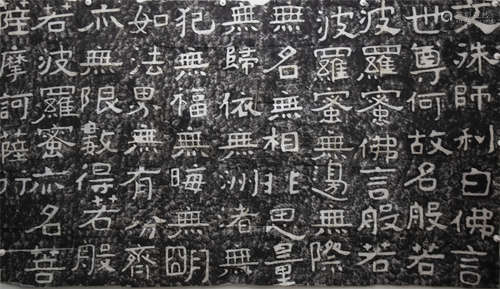 文殊師利白佛言
世尊何故名般若
波羅蜜佛言般若
波羅蜜無邊無際
無名無相非思量
無歸依無洲者無
犯無福無晦無明
如法界無有分齊
亦無限數得若般
若波羅蜜亦名菩
薩摩訶薩行